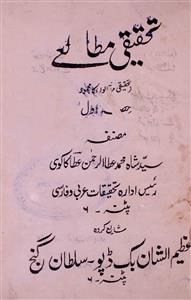 تحقیقی مطالعے
(تحقیقی مقالوں کا مجموعہ)
حصہ اول
مصنفہ
سید شاہ محمد عطاالرحمن عطا کاکوی
رئیس ادارہ تحقیقات عربی و فارسی
پٹنہ - ۶
شایع کردہ
عظیم الشان بک ڈپو - سلطان گنج
پٹنہ - ۶